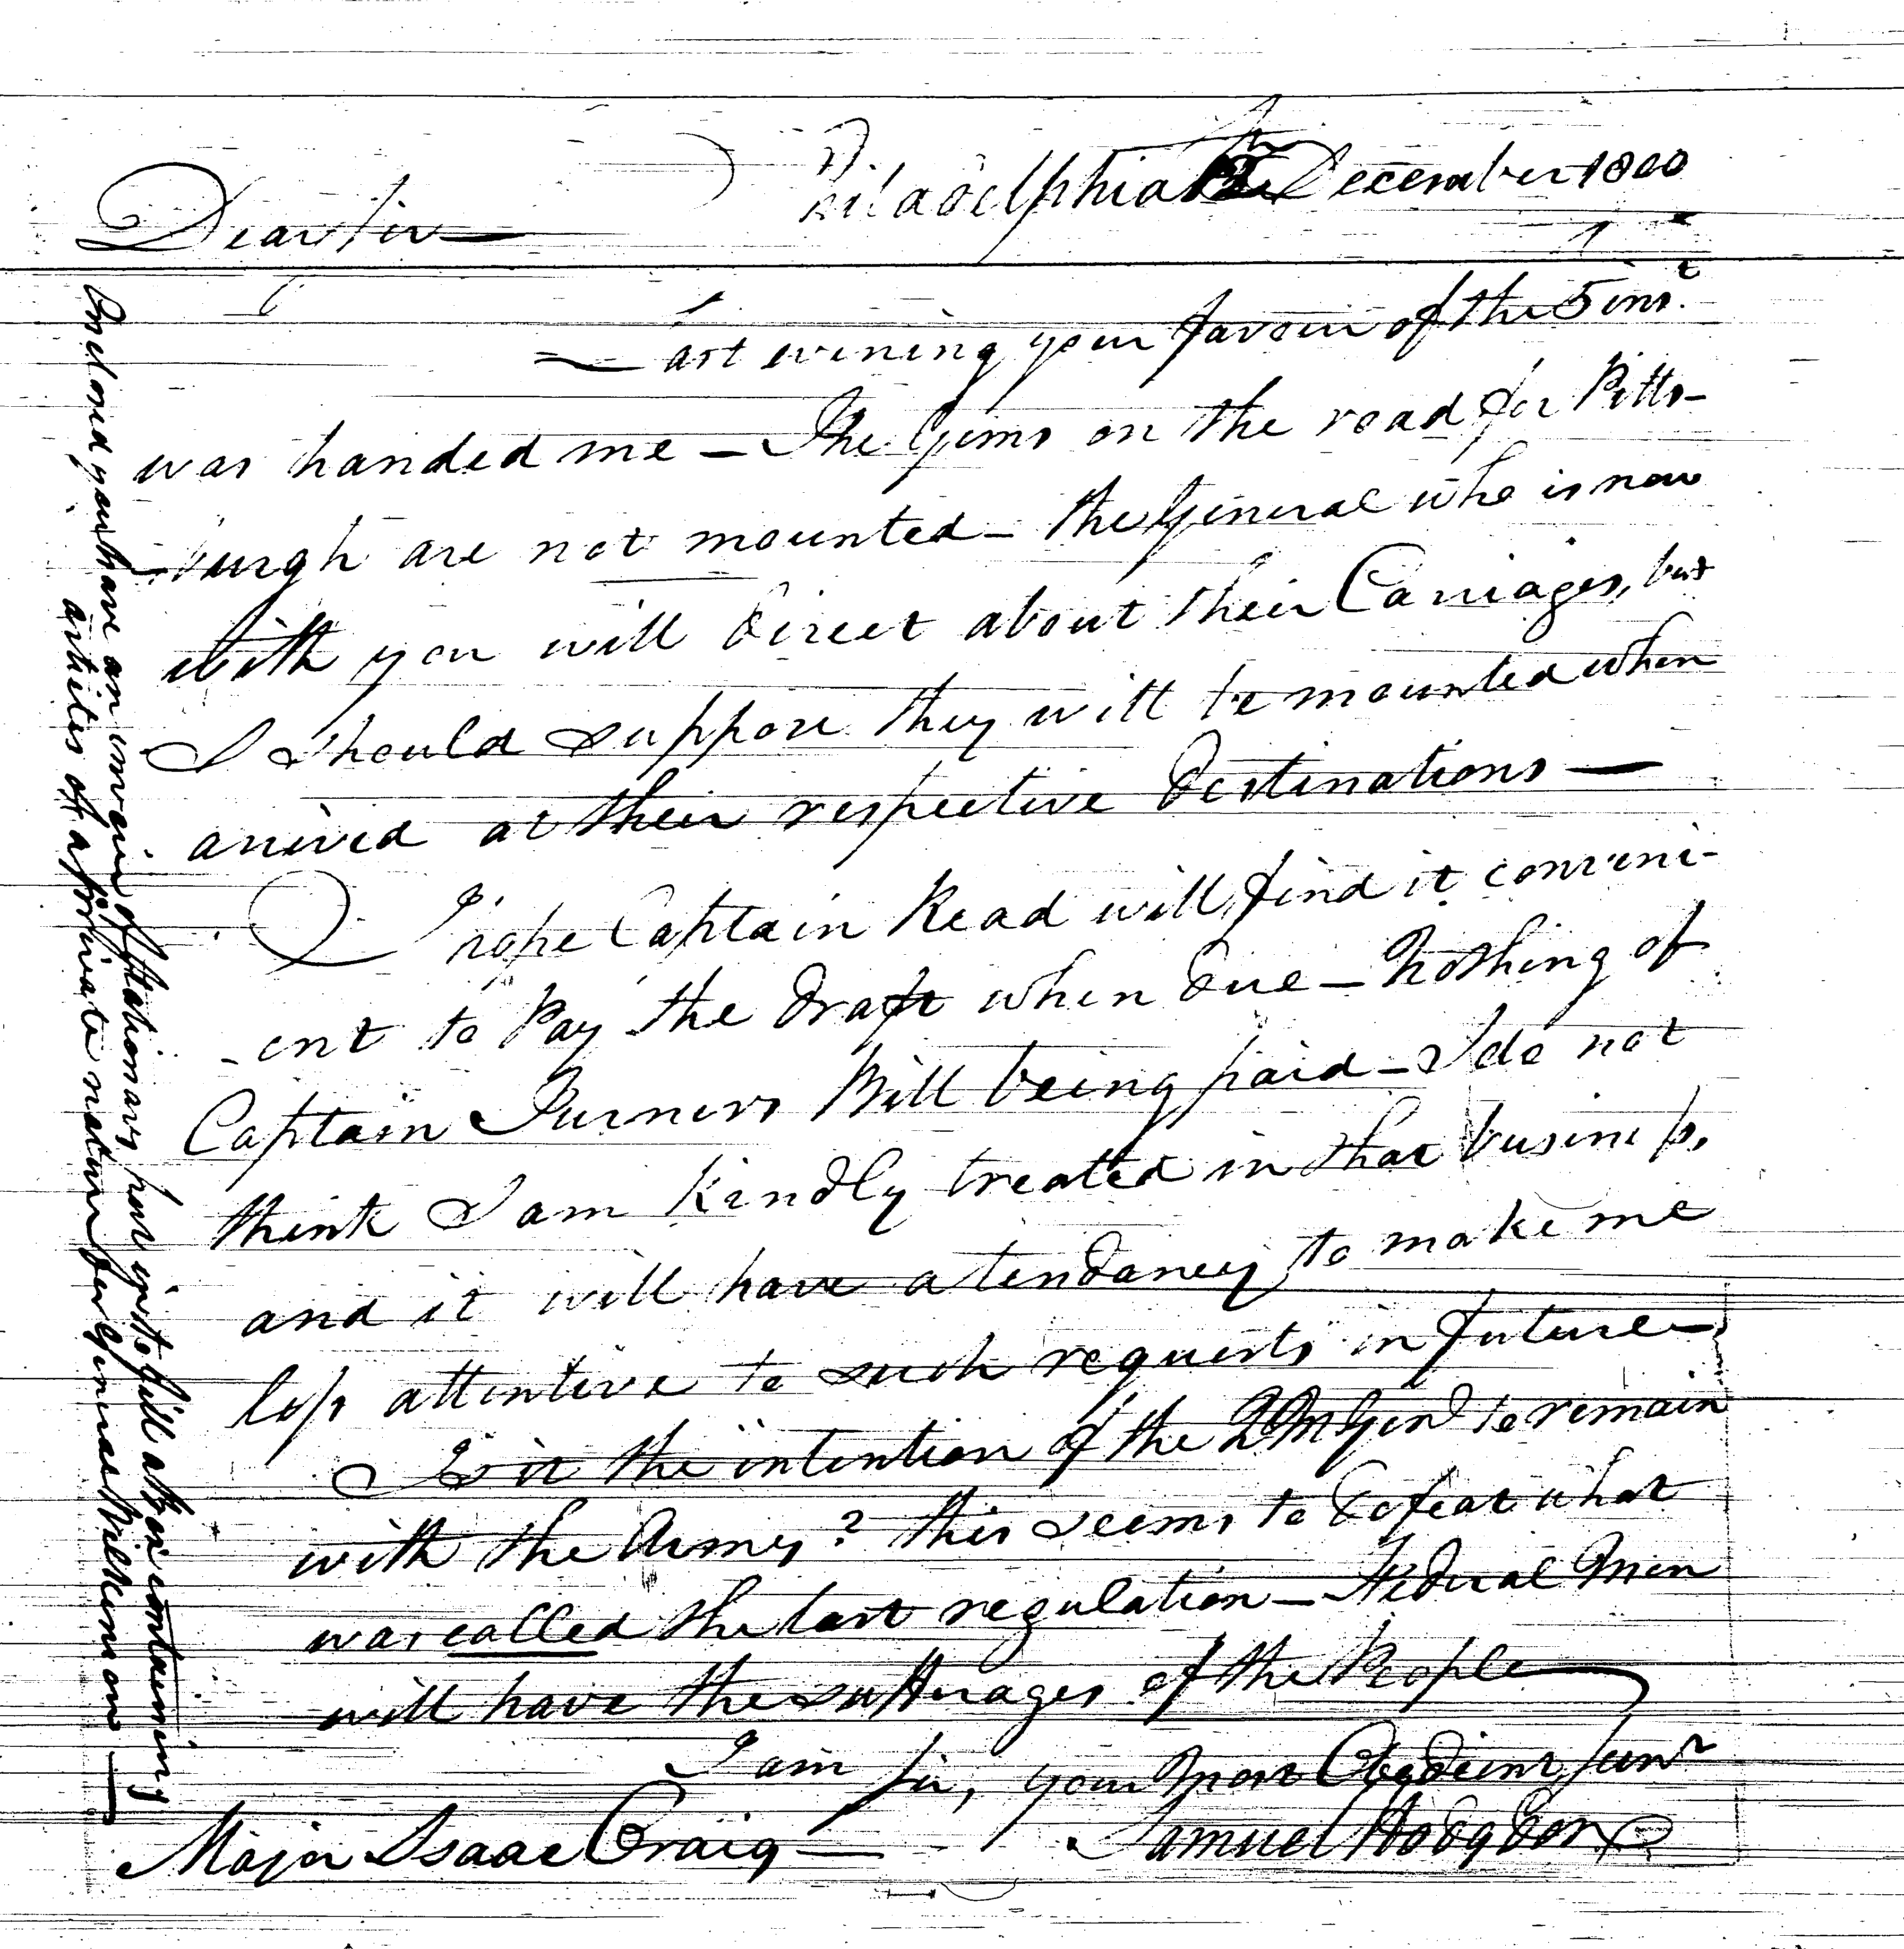 Philadelphia December 1800
Dear Sir
Last evening your favour of the 5 inst.
was handed me — The Guns on the road for Pitts-
-burgh are not mounted — the General who is now
with you will direct about their Carriages, but
I should suppose they will be mounted when
arrived at their respective destinations —
I hope Captain Read will find it conveni-
-ent to pay the draft when due — Nothing of
Captain Turners Bill being paid — I do not
think I am kindly treated in that business,
and it will have a tendancy to make me
less attentive to such requests in future —
Is it the intention of the QM Genl to remain
with the Army? this seems to defeat what
was called the last regulation — Federal Men
will have the suffrages of the People
I am Sir, your most Obedient Servt
Samuel Hodgdon
Major Isaac Craig —
Enclosed you have an invoice of Stationary, put up to fill a Box containing
articles of a private nature for General Wilkinson —